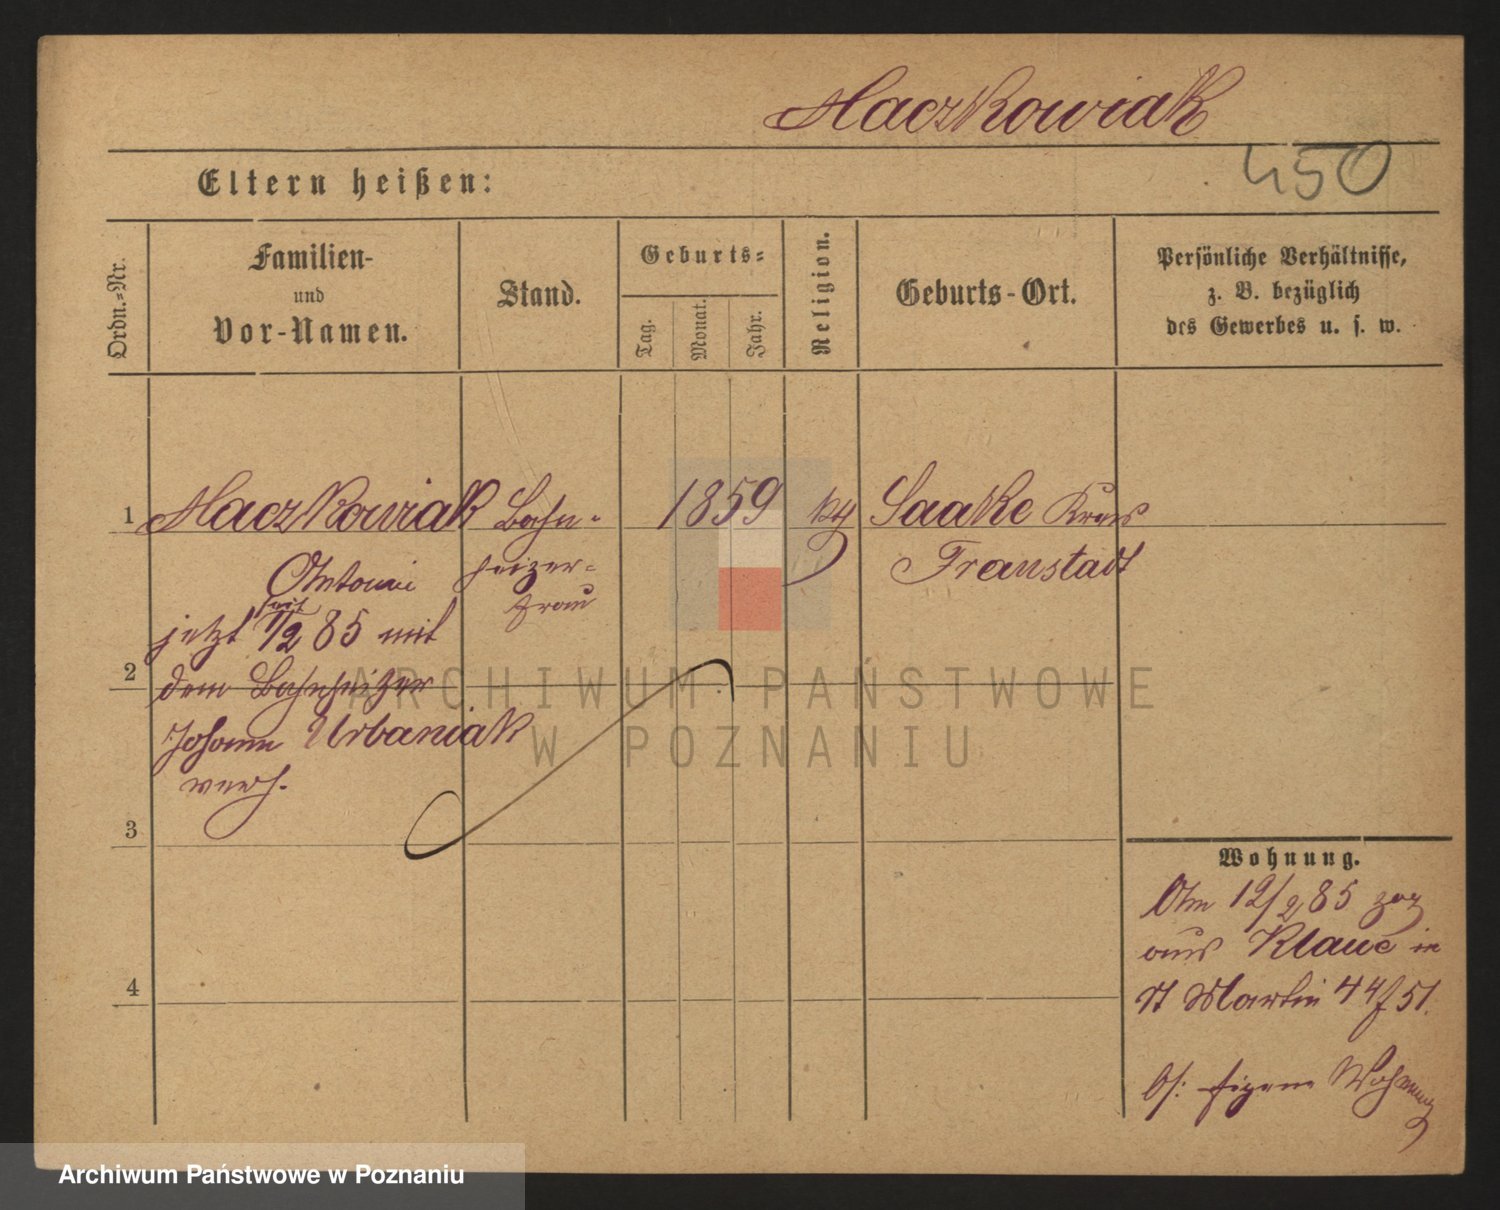 Haczkowiak
450
Eltern heißen:
Ordn.=Nr.
Familien-
und
Vor-Namen.
Stand.
Geburts=
Tag.
Monat.
Jahr.
Religion.
Geburts-Ort.
Persönliche Verhältnisse,
z. B. bezüglich
des Gewerbes u. s. w.
1 Haczkowiak Bahn- 1859 kth Saake Kreis
Antonie heizer= Fraustadt
frau
seit
jetzt 11/2 85 mit
2
dem Bahnheizer
Johann Urbaniak
verh.
3
4
Wohnung.
Am 12/2 85 zog
aus Klaue in
St Martin 44 f 51.
bs: eigene Wohnung
ARCHIWUM PAŃSTWOWE
W POZNANIU
Archiwum Państwowe w Poznaniu